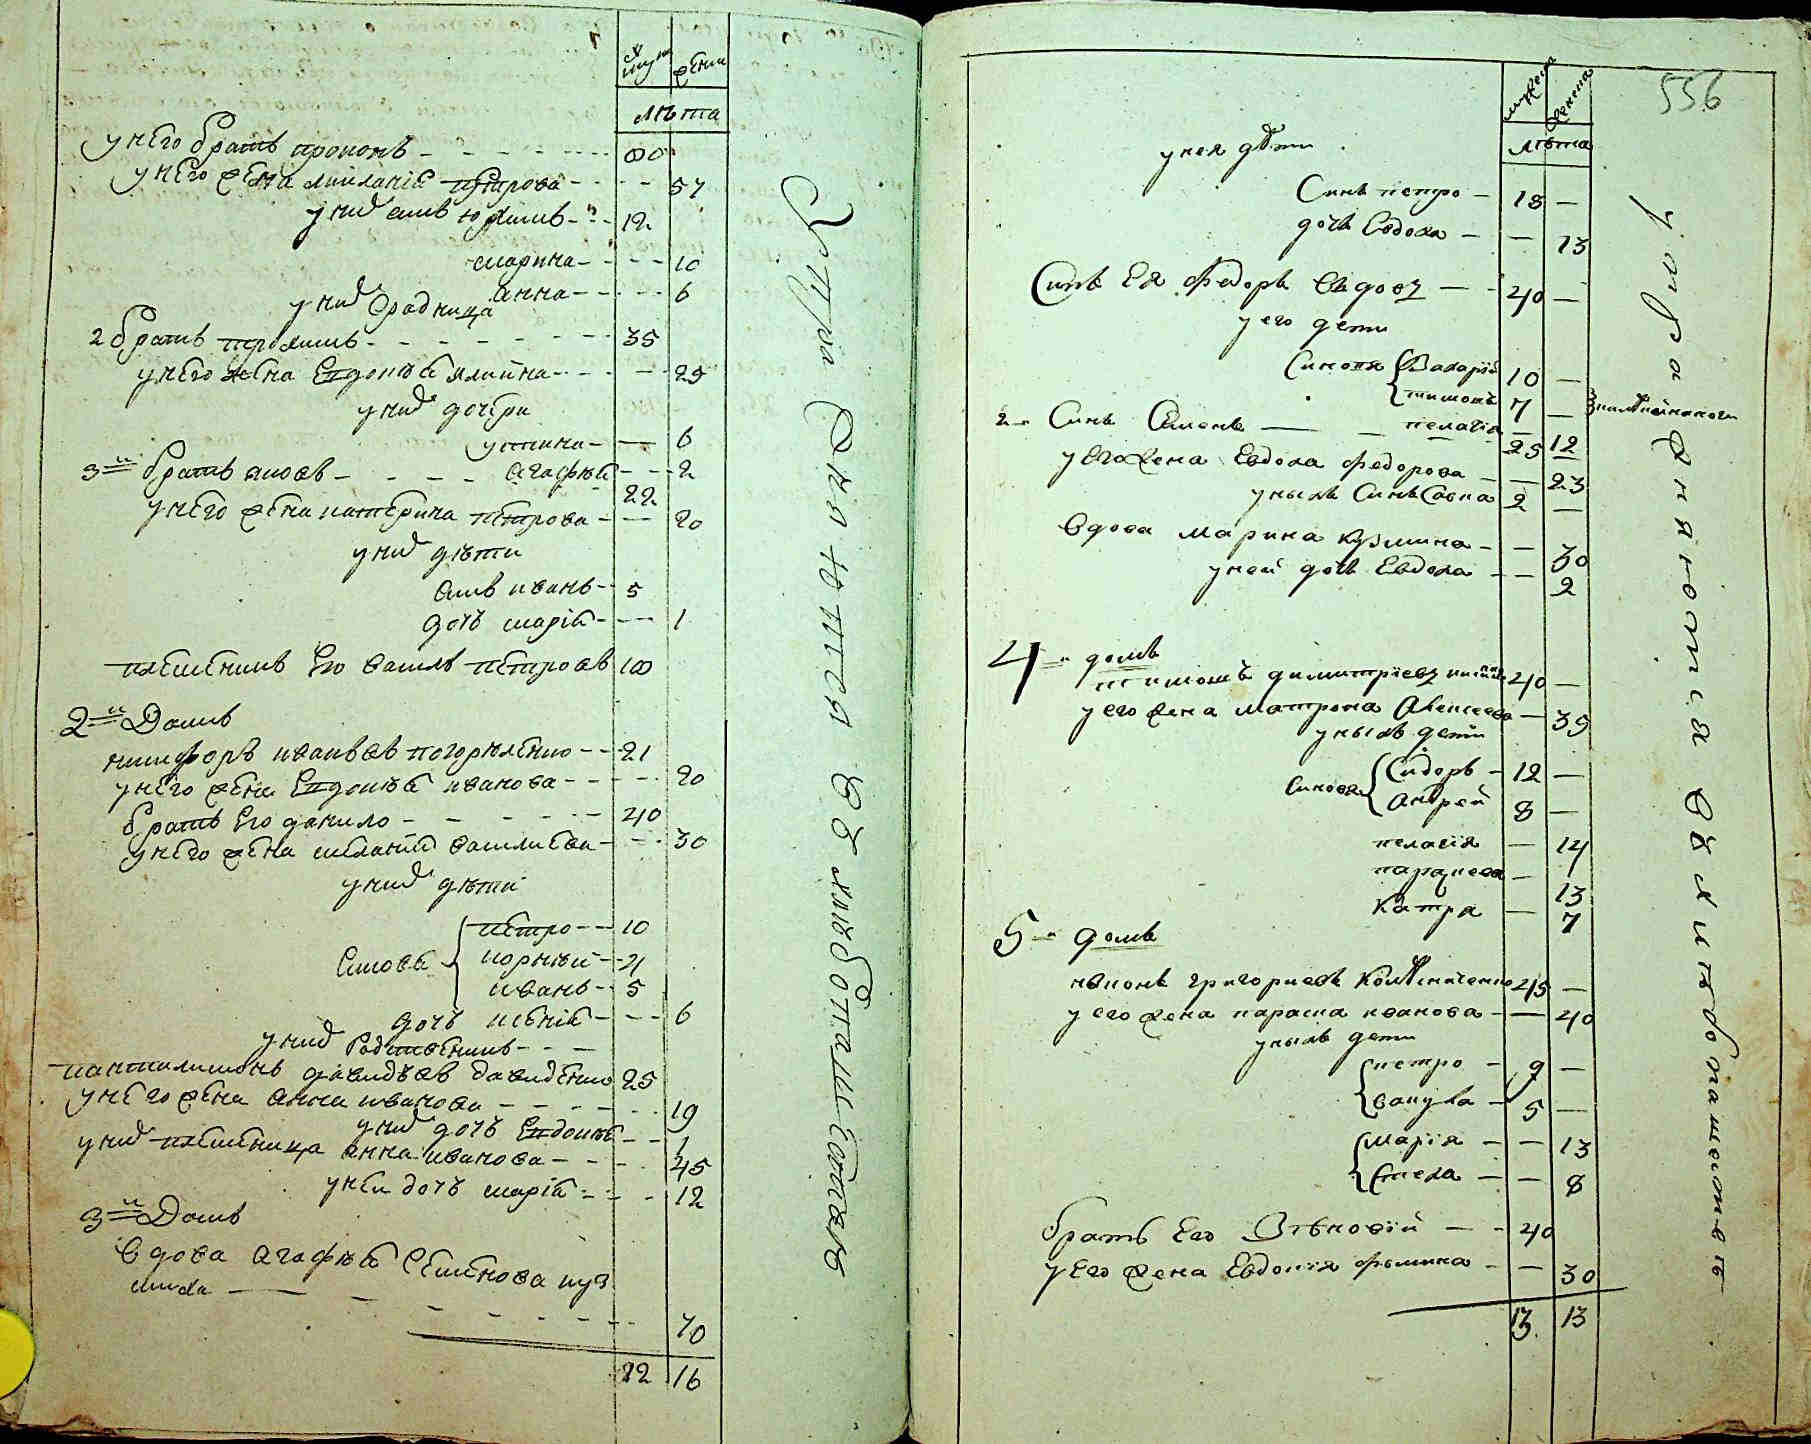 муж жени
лѣта
у него братъ прокопъ 80
у него жена миланія петрова 57
у них синъ юхимъ 12
марина 10
анна 6
у них Сродница
2 братъ трохимъ 35
у него жена Евдокія 29
у них дочери
устина 6
3й братъ яковъ 22
агафія 2
у него жена катерина петрова 20
у них дѣти
синъ иванъ 5
дочь марія 1
племеникъ Его василь петровъ 18
2й Домъ
никифоръ ивановъ погорѣленко 21
у него жена Евдокія иванова 20
братъ Его данило 40
у него жена меланія василиева 30
у них дѣти
Синови петро 10
корній 21
иванъ 5
дочь ксенія 6
у них Родственикъ
пантилимонъ давидовъ давиденко 25
у него жена анна иванова 19
у них дочь Евдокія 1
у них племеница анна иванова 45
у неи дочь марія 12
3й Домъ
вдова агафія Семенова куз
миха
70
22 16
У пура жи ю т ся въ
556
мужеска женска
лѣта
у нея дѣти
Синъ петро 18
дочь Евдоха 13
Синъ Ея Федоръ вдовъ 40
у его дети
Синовя Захарій 10
тимошъ 7
пелагія 12
2 Синъ Семенъ 25
у его жена Евдоха федорова 23
у ныхъ Синъ Савка 2
вдова марина кузмина 30
у ней дочь Евдоха 2
4 домъ
тимошъ димитріевъ 40
у его жена матрона алексеева 39
у ныхъ дети
Синовя Сидоръ 12
андрей 8
пелагія 14
параскева 13
Катря 7
5 домъ
никонъ григориевъ 45
у его жена параска иванова 40
у ныхъ дети
петро 9
вакула 5
марія 13
Стеха 8
братъ Его Зѣновій 40
у Его жена Евдокія фомина 30
13 13